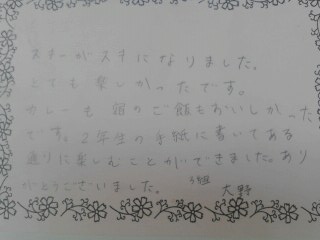 スキーがスキになりました。
とても楽しかったです。
カレーも宿のご飯もおいしかった
です。2年生の手紙に書いてある
通りに楽しむことができました。あり
がとうございました。 3組 大野